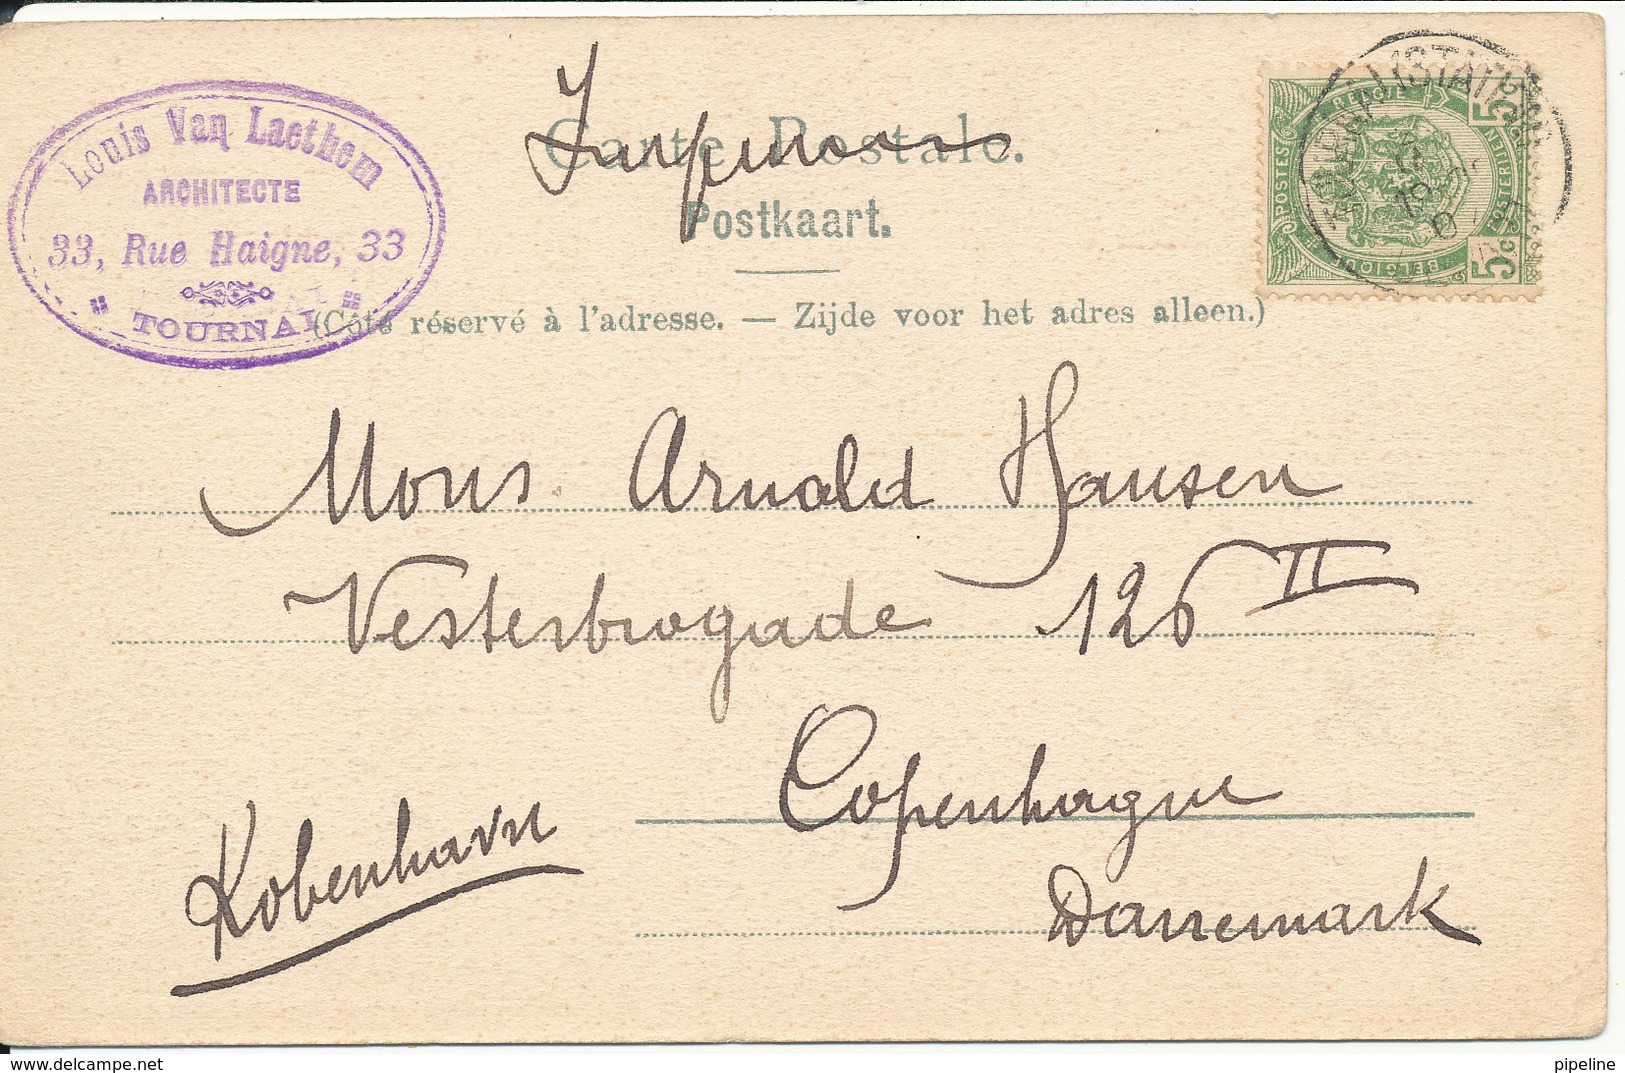 Louis Van Laethem
ARCHITECTE
33, Rue Haigne, 33
TOURNAI
Carte Postale.
Postkaart.
(Côté réservé à l'adresse. — Zijde voor het adres alleen.)
BELGIË
POSTES
POSTERIJEN
BELGIQUE
5 5
Mons Arnold Hansen
Vesterbrogade 126 II
Copenhague
Kobenhavn
Danemark
pipeline